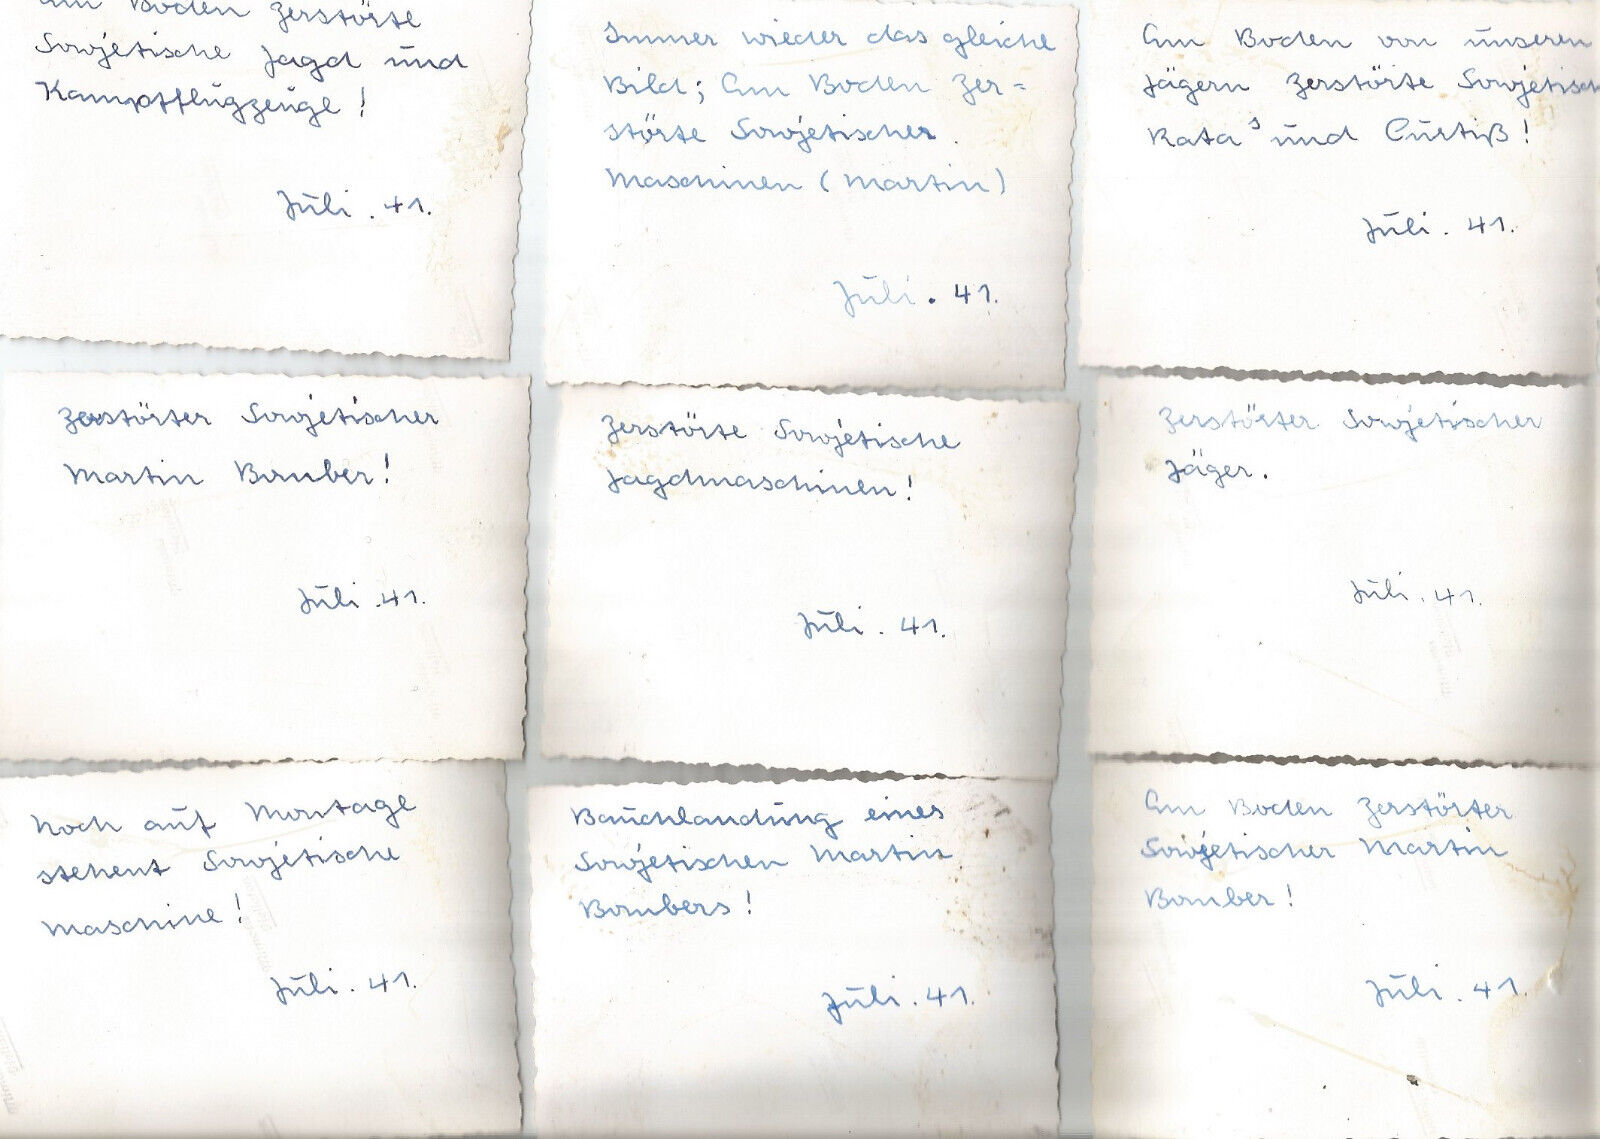 Am Boden zerstörte
Sowjetische Jagd und
Kampfflugzeuge!
Juli. 41.
Immer wieder das gleiche
Bild; Am Boden Zer=
störte Sowjetischer.
Maschinen (Martin)
Juli. 41.
Am Boden von unseren
Jägern Zerstörte Sowjetisch
Rata's und Curtiß!
Juli. 41.
Zerstörter Sowjetischer
Martin Bomber!
Juli. 41.
Zerstörte Sowjetische
Jagdmaschinen!
Juli. 41.
Zerstörter Sowjetischer
Jäger.
Juli. 41.
Noch auf Montage
stehent Sowjetische
Maschine!
Juli. 41.
Bauchlandung eines
Sowjetischen Martin
Bombers!
Juli. 41.
Am Boden Zerstörter
Sowjetischer Martin
Bomber!
Juli. 41.